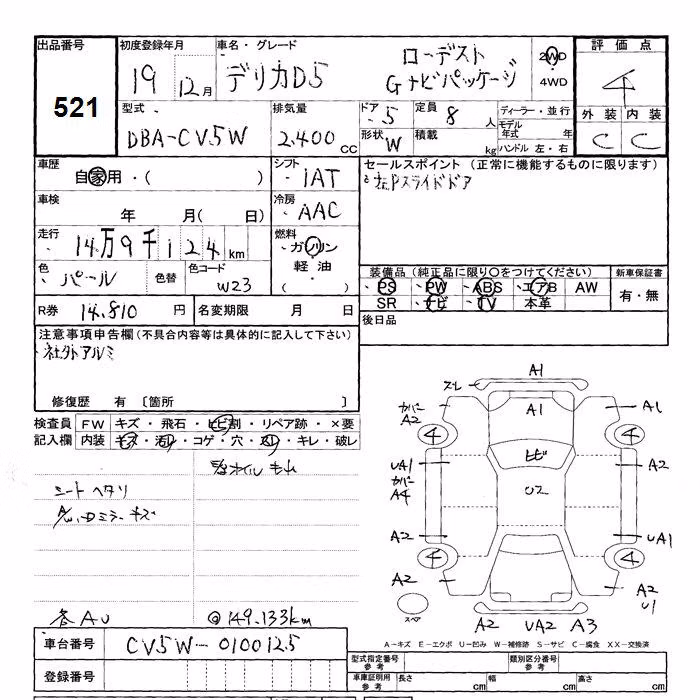 出品番号
521
初度登録年月
19 12月
車名・グレード
デリカD5
ローデスト
Gナビパッケージ
2WD
・
4WD
評価点
4
外装 内装
C C
型式
DBA-CV5W
排気量
2.400 CC
ドア
5
定員
8 人
形状
W
積載
kg
ディーラー・並行
モデル
年式 年
ハンドル 左・右
車歴
自家用・( )
シフト
IAT
セールスポイント (正常に機能するものに限ります)
スライドドア
車検
年 月( 日)
冷房
AAC
走行
14万9千124km
燃料
ガソリン
軽油
( )
色
パール
色替
色コード
W23
装備品 (純正品に限り○をつけてください)
PS PW ABS エアB AW
SR ナビ TV 本革
新車保証書
有・無
R券
14.810 円
名変期限 月 日
後日品
注意事項申告欄 (不具合内容等は具体的に記入して下さい)
社外アルミ
修復歴 有 〔箇所 〕
検査員
記入欄
FW キズ・飛石・ヒビ割・リペア跡・×要
内装 キズ・汚レ・コゲ・穴・スレ・キレ・破レ
オイルもれ
シートヘタリ
ミラーキズ
各AU
@149.133km
A1
スレ
A1
カバー
A2
A1
4
4
ヒビ
UA1
カバー
A4
A2
U2
A2
UA1
4
4
A2
A2
U1
スペア
A2 UA2 A3
A-キズ E-エクボ U-凹み W-補修跡 S-サビ C-腐食 XX-交換済
車台番号
CV5W-0100125
登録番号
型式指定番号
参考
類別区分番号
参考
車庫証明用
参考
長さ cm 幅 cm 高さ cm